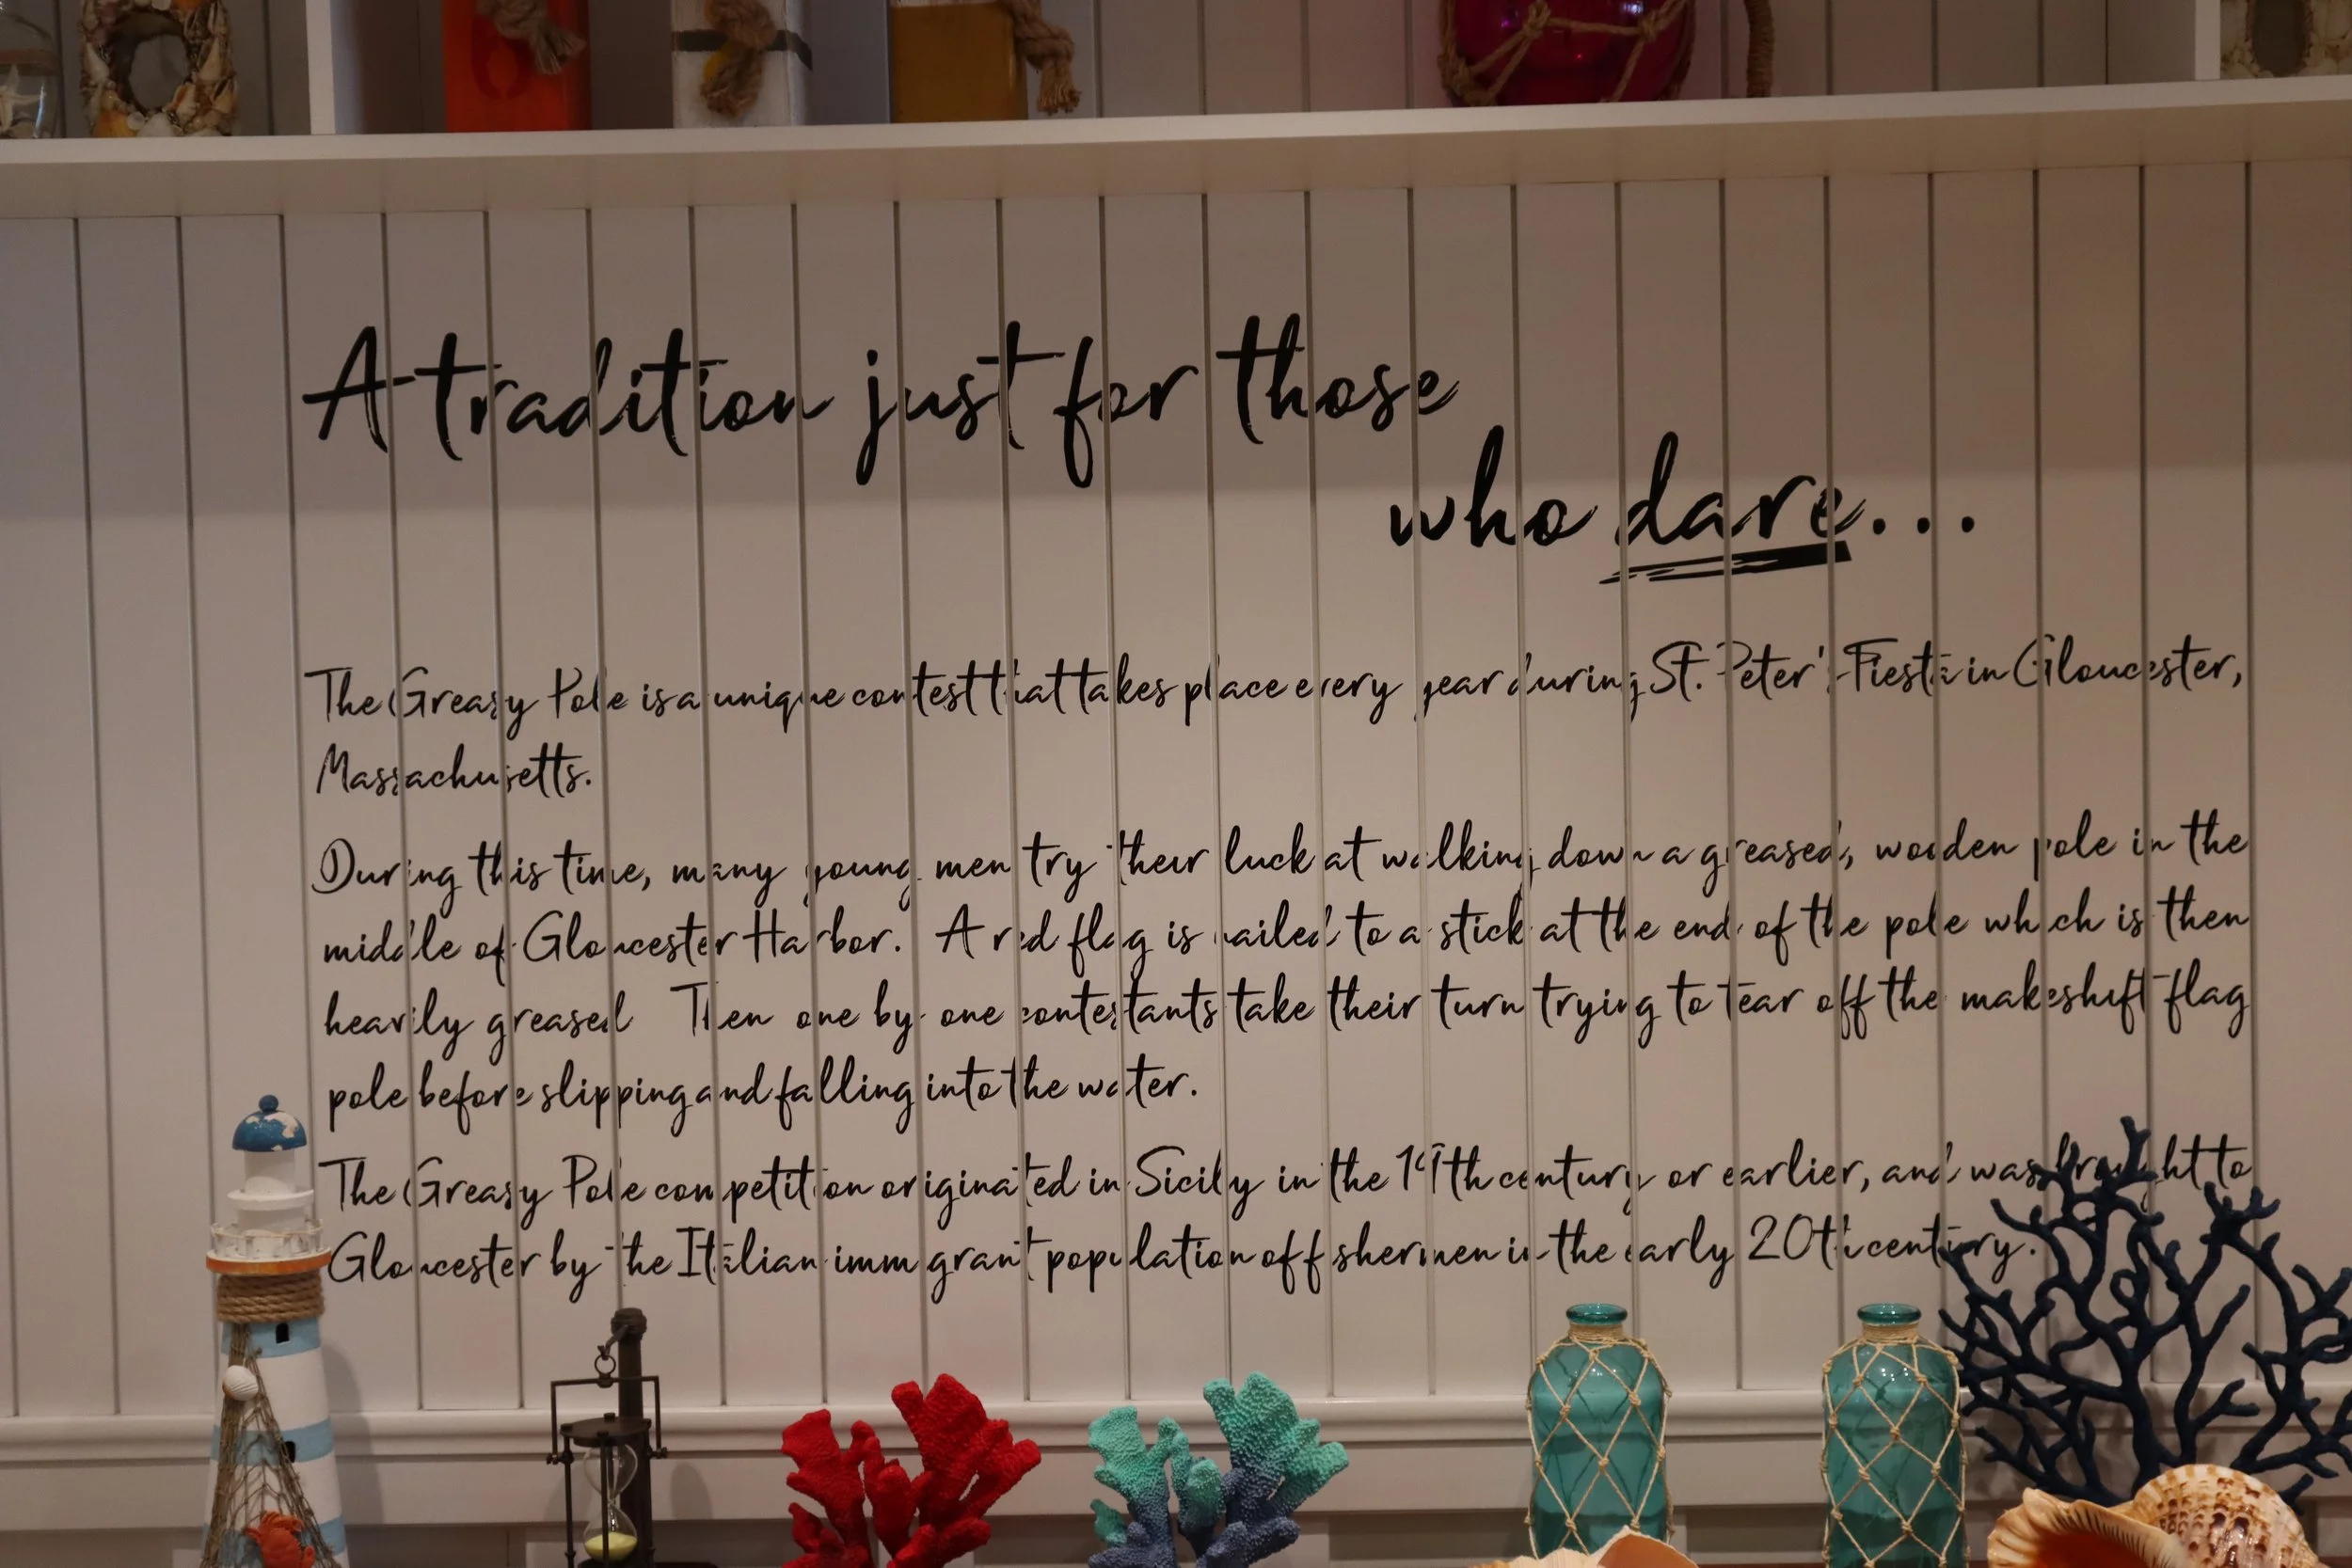 A tradition just for those
who dare...
The Greasy Pole is a unique contest that takes place every year during St. Peter's Fiesta in Gloucester,
Massachusetts.
During this time, many young men try their luck at walking down a greased, wooden pole in the
middle of Gloucester Harbor. A red flag is nailed to a stick at the end of the pole which is then
heavily greased Then one by one contestants take their turn trying to tear off the makeshift flag
pole before slipping and falling into the water.
The Greasy Pole competition originated in Sicily in the 19th century or earlier, and was brought to
Gloucester by the Italian immigrant population of fishermen in the early 20th century.